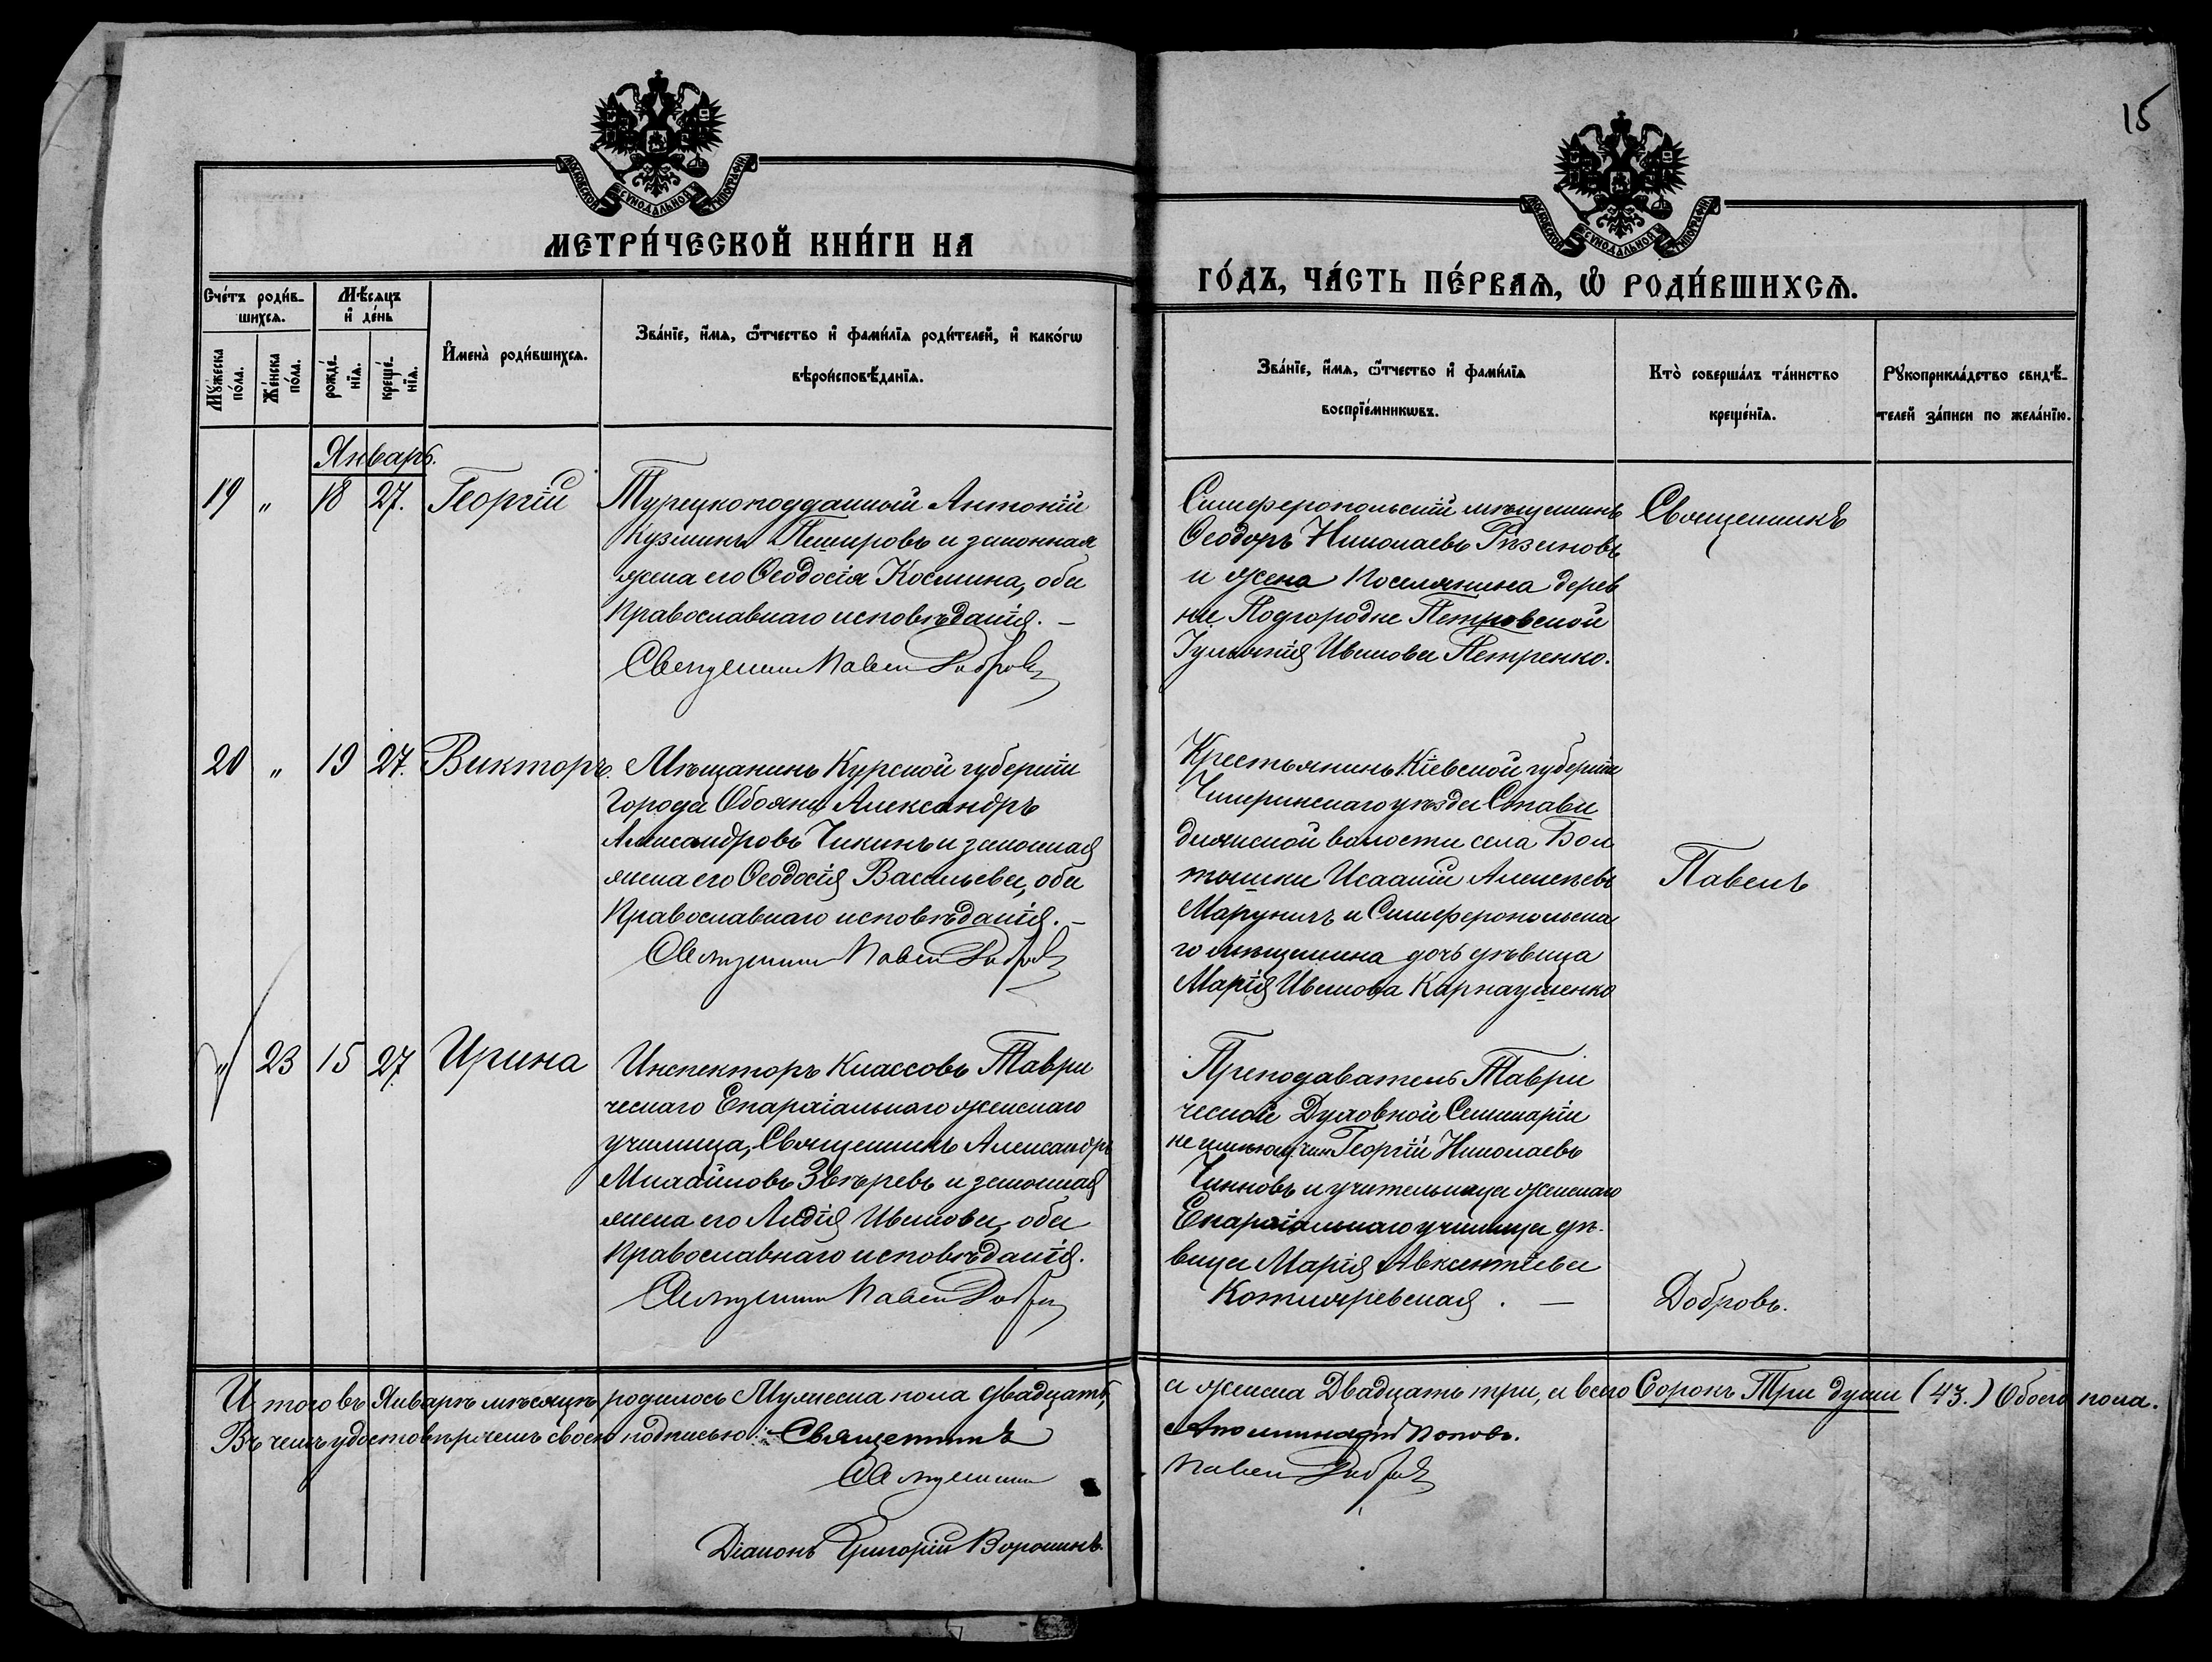 15
МОСКОВСКОЙ СѴНОДАЛЬНОЙ ТИПОГРАФІИ
МОСКОВСКОЙ СѴНОДАЛЬНОЙ ТИПОГРАФІИ
МЕТРИ́ЧЕСКОЙ КНИ́ГИ НА
ГО́ДЪ, ЧА́СТЬ ПЕ́РВАѦ, Ѡ҆ РОДИ́ВШИХСѦ.
Сче́тъ роди́в-
шихсѧ.
Мꙋ́жеска
по́ла.
Же́нска
по́ла.
Мѣ́сѧцъ
и҆ де́нь
рожде́-
нїѧ.
креще́-
нїѧ.
И҆мена̀ роди́вшихсѧ.
Зва́нїе, и҆́мѧ, ѻ҆́тчество и҆ фами́лїѧ роди́телей, и҆ како́гѡ
вѣроисповѣ́данїѧ.
Зва́нїе, и҆́мѧ, ѻ҆́тчество и҆ фами́лїѧ
воспрїе́мникѡвъ.
Кто̀ соверша́лъ та́инство
креще́нїѧ.
Рꙋкоприкла́дство свидѣ́-
телей за́писи по жела́нїю.
Январь.
19 " 18 27. Георгій
Турецкоподданный Антоній
Кузминъ Пешеровъ и законная
жена его Ѳеодосія Космина, оба
Православнаго исповѣданія. —
Священникъ Павелъ Добровъ
Симферопольскій мѣщанинъ
Ѳеодоръ Николаевъ Рязановъ
и жена поселянина дерев
ни Подгородне Петровской
Іуліанія Иванова Петренко.
Священникъ
20 " 19 27. Викторъ.
Мѣщанинъ Курской губерніи
города Обояни Александръ
Александровъ Чикинъ и законная
жена его Ѳеодосія Васильева, оба
Православнаго исповѣданія. —
Священникъ Павелъ Добровъ
Крестьянинъ Кіевской губерніи
Чигиринскаго уѣзда Стави
дянской волости села Бол
тышки Исаакій Алексѣевъ
Маруничъ и Симферопольска
го мѣщанина дочь дѣвица
Марія Иванова Карнаушенко
Павелъ
" 23 15 27. Ирина
Инспекторъ классовъ Таври
ческаго Епархіальнаго женскаго
училища, Священникъ Александръ
Михайловъ Звѣревъ и законная
жена его Лидія Иванова, оба
Православнаго исповѣданія.
Священникъ Павелъ Добровъ
Преподаватель Таври
ческой Духовной Семинаріи
не имѣющ. чин. Георгій Николаевъ
Чинновъ и учительница женскаго
Епархіальнаго училища дѣ-
вица Марія Авксентіева
Котляревская. —
Добровъ.
Итого въ Январѣ мѣсяцѣ родилось Мужеска пола двадцать,
а женска Двадцать три, а всего Сорокъ Три души (43.) Обоего пола.
Въ чемъ удостовѣряемъ своею подписью: Священникъ
Аполлинарій Поповъ.
Священникъ
Павелъ Добровъ
Діаконъ Григорій Воронинъ.